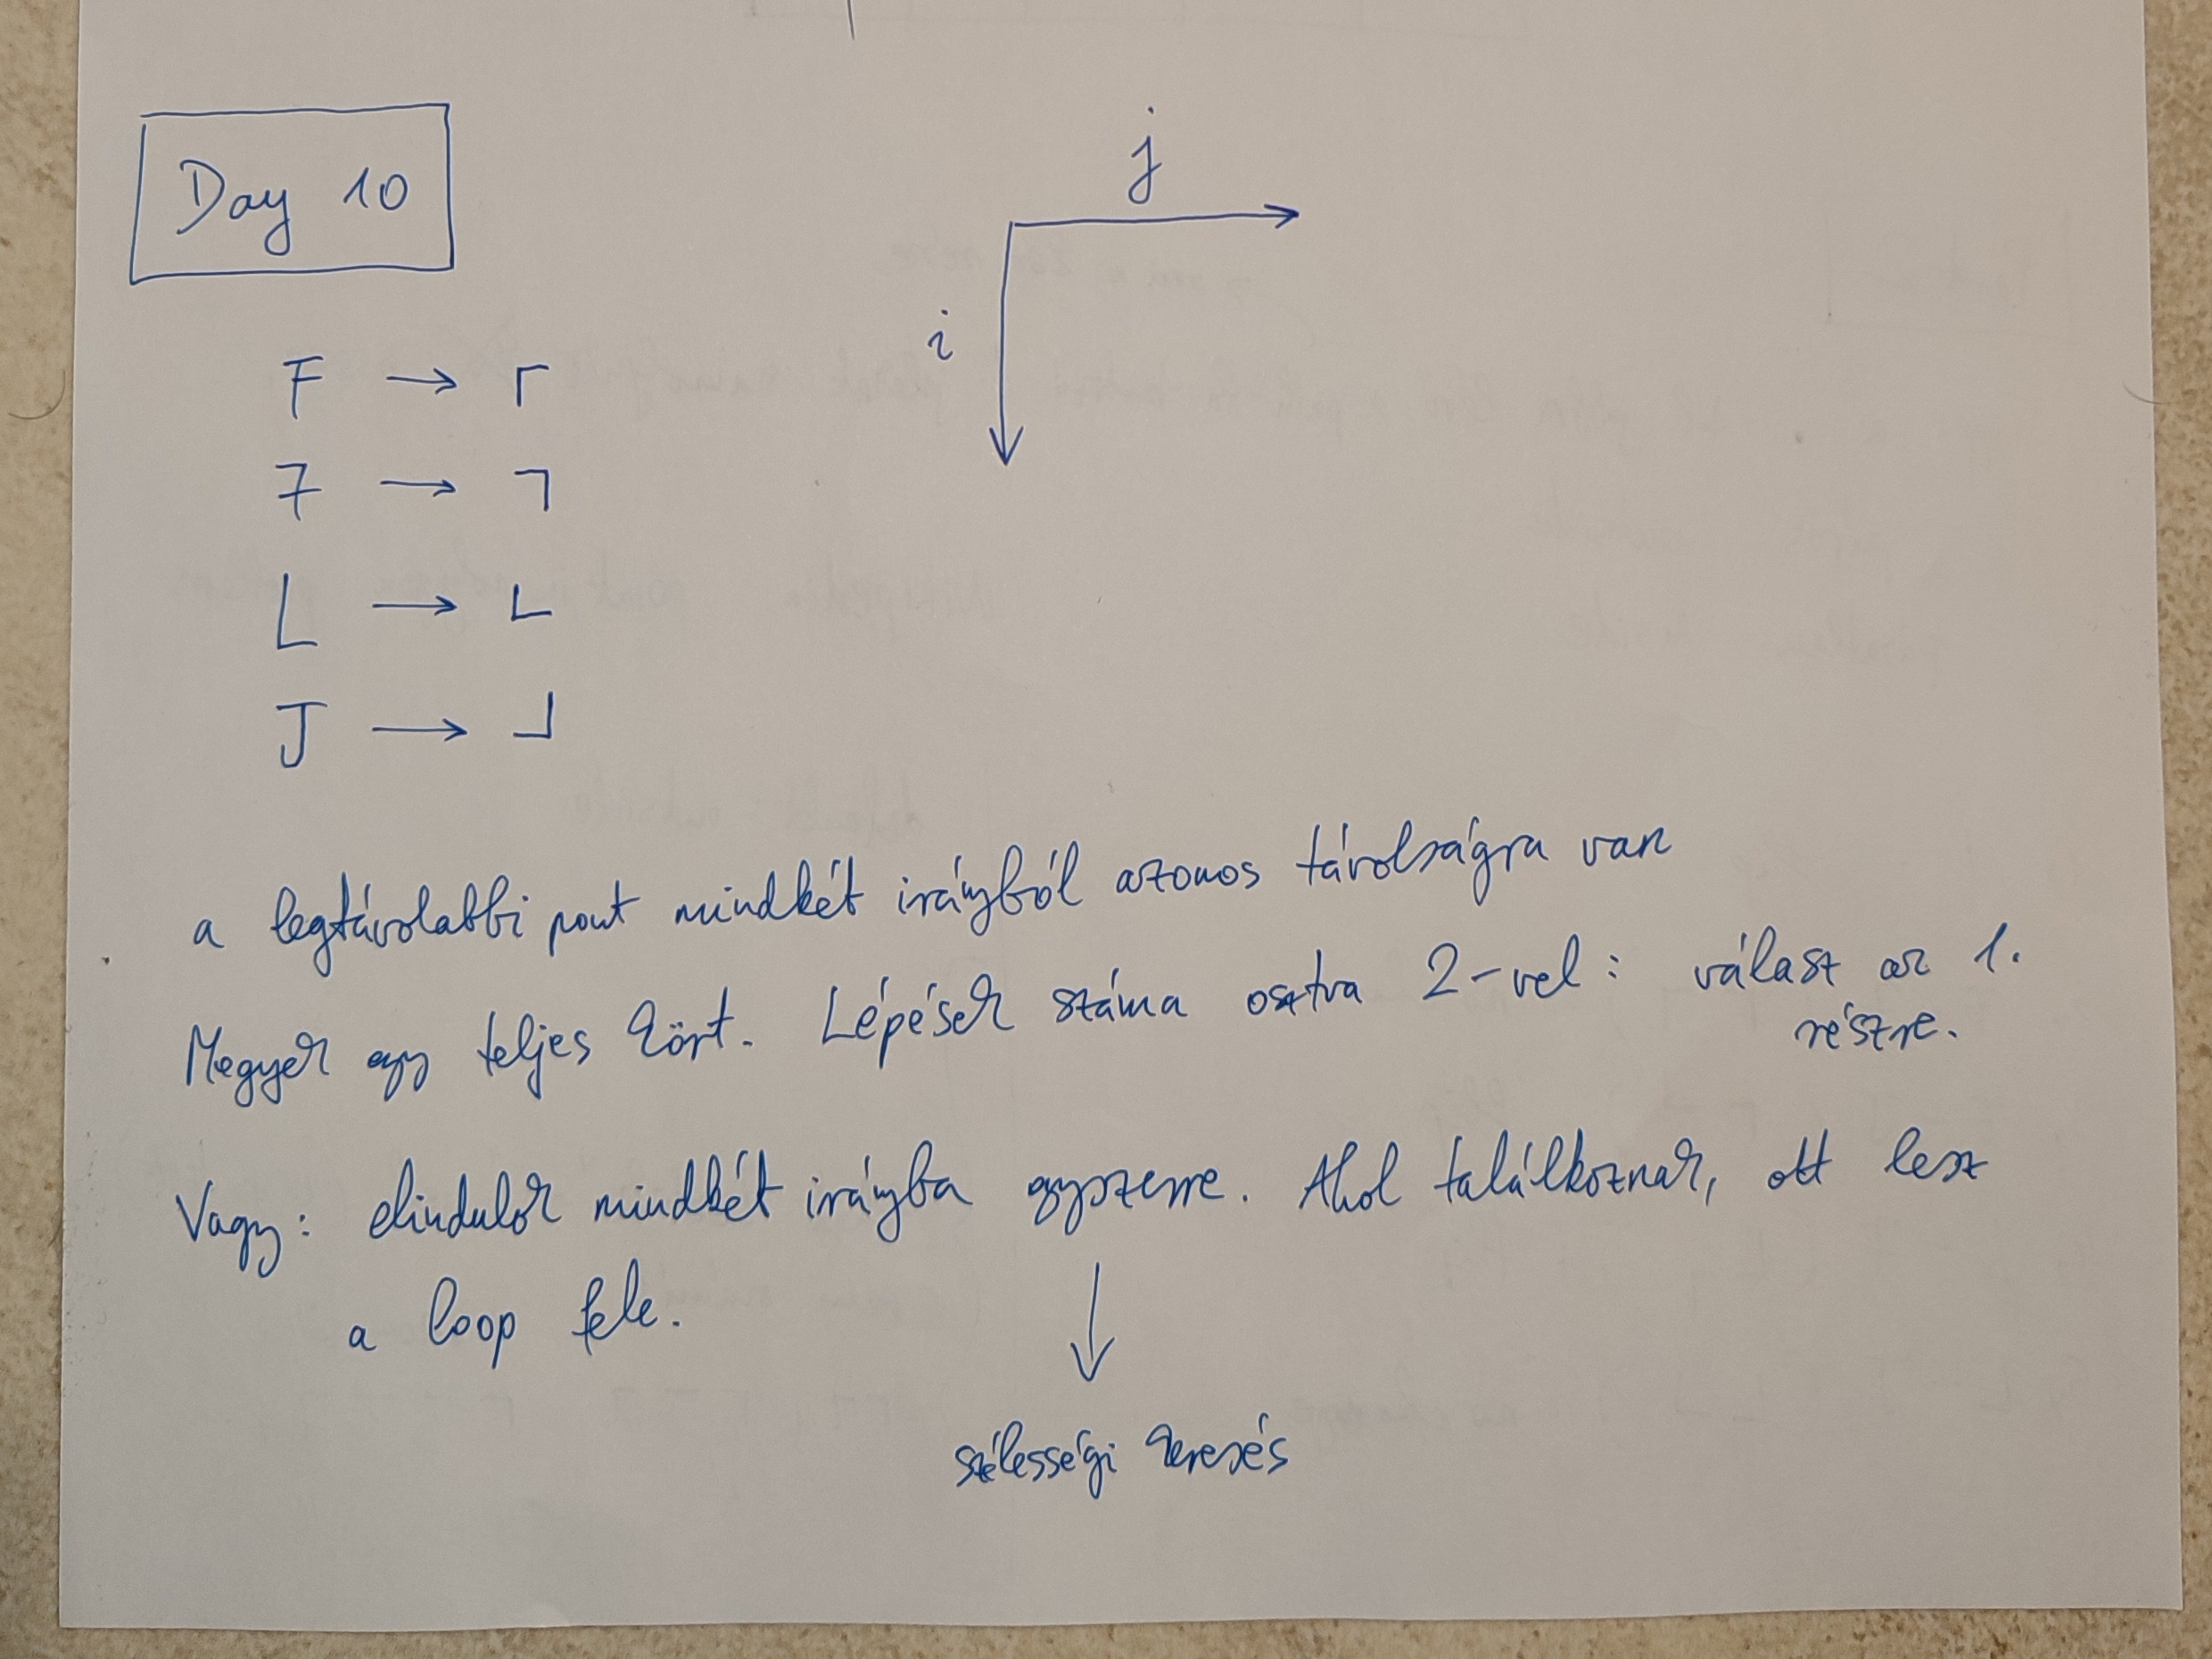 Day 10
j
i
F → ┌
7 → ┐
L → └
J → ┘
a legtávolabbi pont mindkét irányból azonos távolságra van
Megyek egy teljes kört. Lépések száma osztva 2-vel: választ az 1.
részre.
Vagy: elindulok mindkét irányba egyszerre. Ahol találkoznak, ott lesz
a loop fele.
↓
szélességi keresés